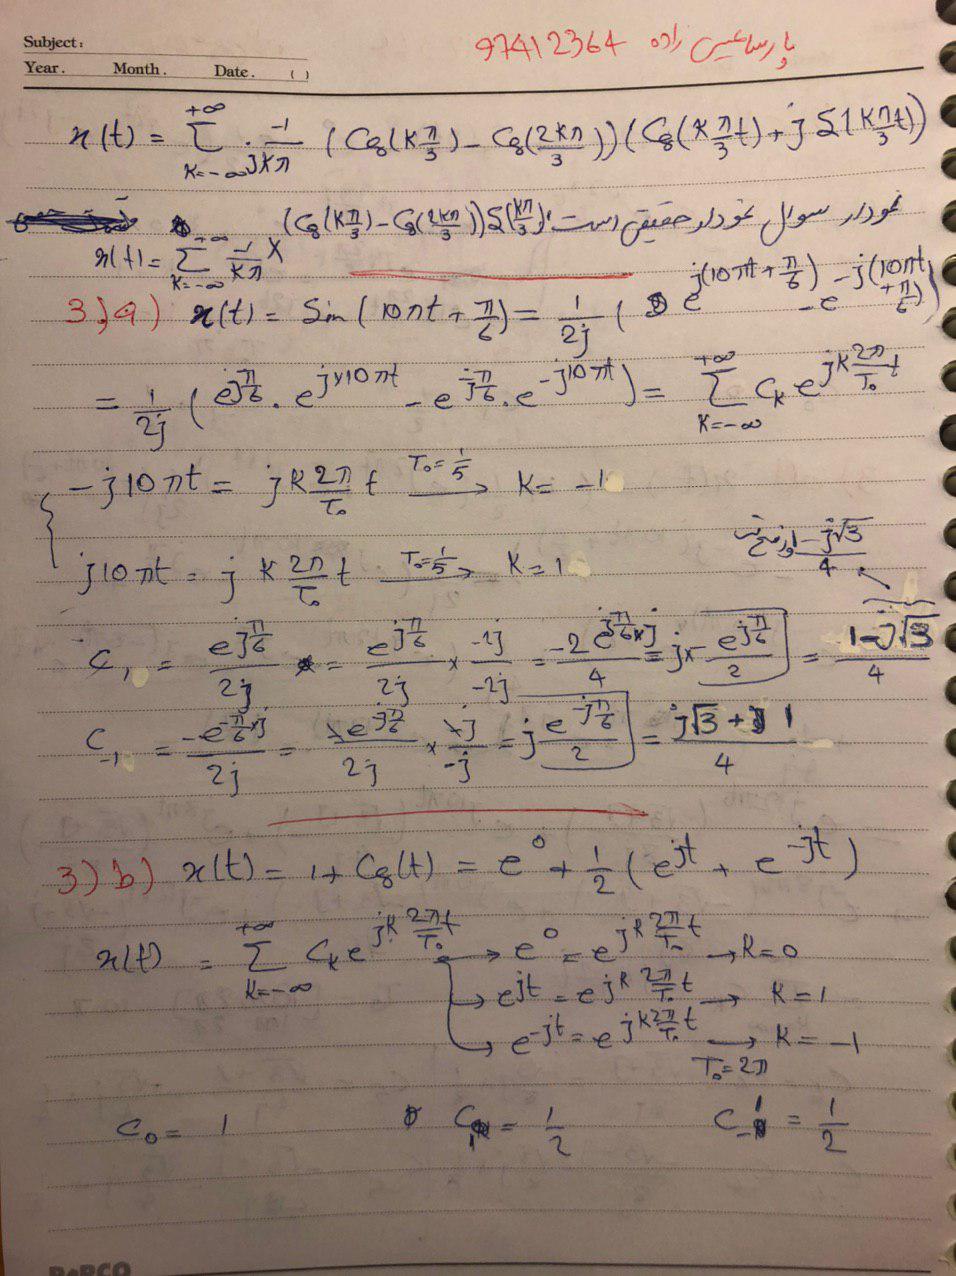 Subject:
97412364
Year. Month. Date. ( )
x(t) = Σ_{k=-∞}^{+∞} -1/jkπ (Cos(kπ/3) - Cos(2kπ/3)) (Cos(kπ/3 t) + j S(kπ/3 t))
نمودار سوال نمودار حقیقی است (Cos(kπ/3) - Cos(2kπ/3)) S(kπ/3)
x(t) = Σ_{k=-∞}^{+∞} -1/kπ ×
3) a) x(t) = Sin(10πt + π/6) = 1/2j ( e^{j(10πt + π/6)} - e^{-j(10πt + π/6)} )
= 1/2j ( e^{jπ/6} . e^{j×10πt} - e^{-jπ/6} . e^{-j10πt} ) = Σ_{k=-∞}^{+∞} C_k e^{jk 2π/T₀ t}
-j10πt = jk 2π/T₀ t → T₀=1/5 k = -1
j10πt = j k 2π/T₀ t → T₀=1/5 k = 1
1-j√3/4
C₁ = e^{jπ/6}/2j = e^{jπ/6}/2j × -2j/-2j = -2e^{jπ/6}×j/4 = j× -e^{jπ/6}/2 = 1-j√3/4
C₋₁ = -e^{-π/6×j}/2j = -e^{-jπ/6}/2j × -j/-j = j e^{-jπ/6}/2 = j√3+1/4
3) b) x(t) = 1 + Cos(t) = e^0 + 1/2 ( e^{jt} + e^{-jt} )
x(t) = Σ_{k=-∞}^{+∞} C_k e^{jk 2π/T₀ t} → e^0 = e^{jk 2π/T₀ t} → k = 0
→ e^{jt} = e^{jk 2π/T₀ t} → k = 1
→ e^{-jt} = e^{jk 2π/T₀ t} → k = -1
T₀ = 2π
C₀ = 1 C₁ = 1/2 C₋₁ = 1/2